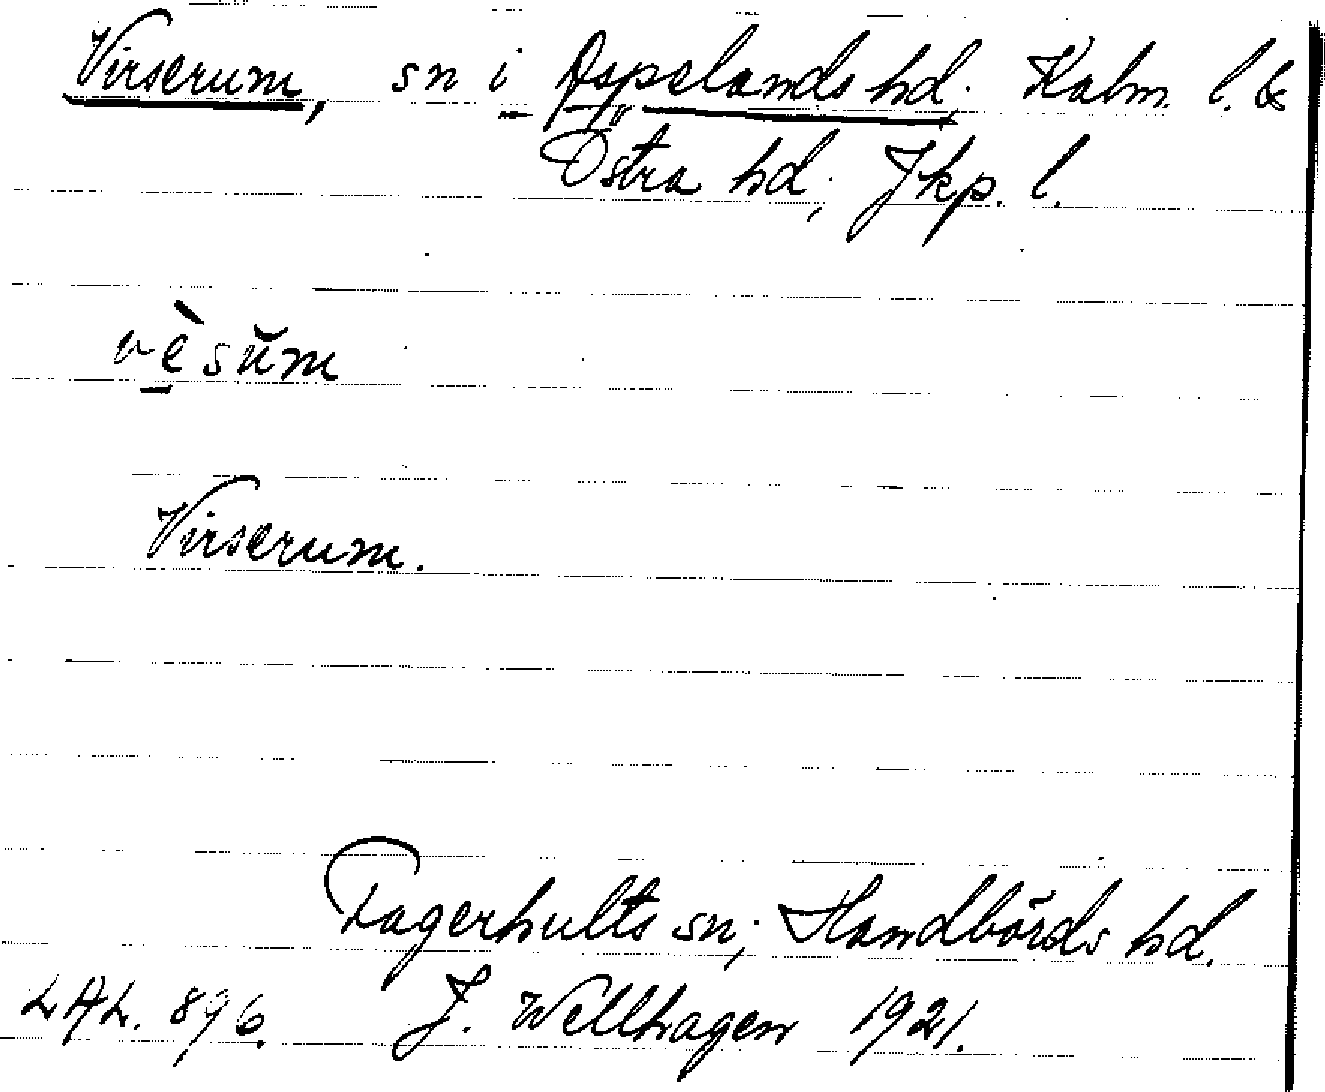 Virserum, sn i Aspelands hd. Kalm. l. &
Östra hd; Jkp. l.
vèsŭm
Virserum.
Fagerhults sn; Handbörds hd.
LAL. 896. J. Wellhagen 1921.